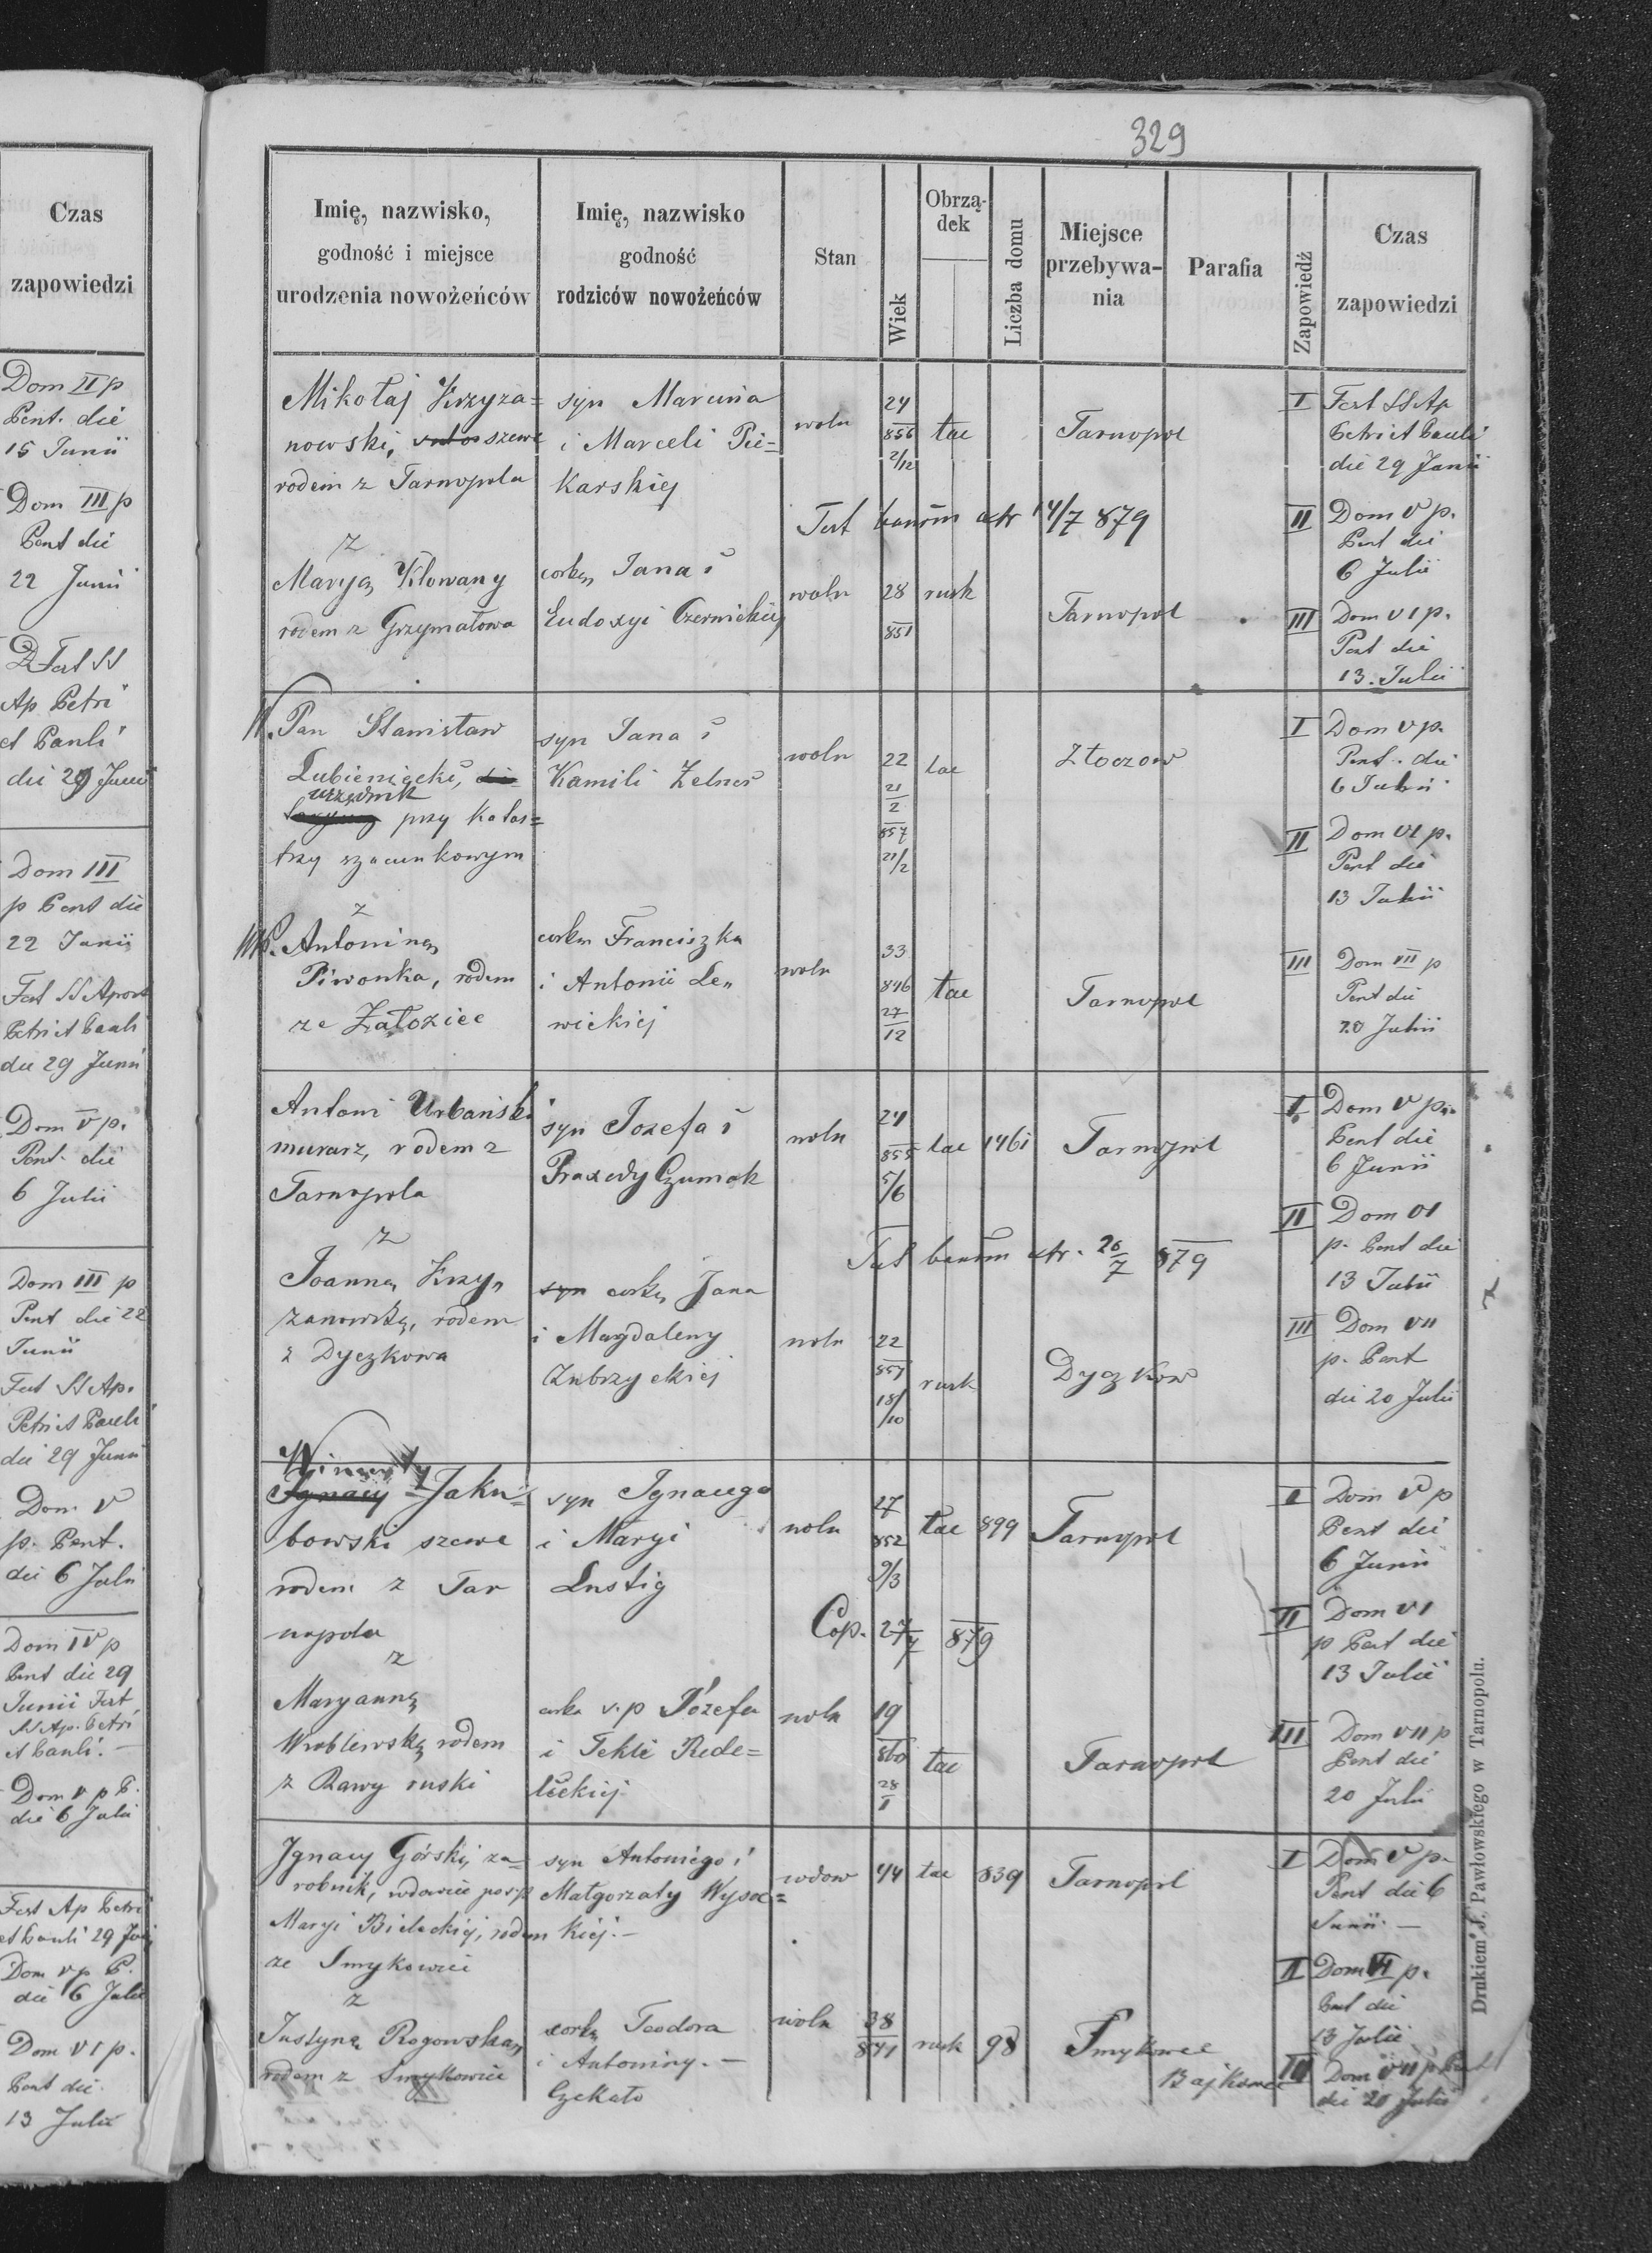 329
Czas
zapowiedzi
Dom II p
Pent. die
15 Junii
Dom III p
Pent die
22 Junii
Fest SS
Ap Petri
et Pauli
die 29 Junii
Dom III
p Pent die
22 Junii
Fest SS Apost
Petri et Pauli
die 29 Junii
Dom V p.
Pent. die
6 Julii
Dom III p
Pent die 22
Junii
Fest SS Ap.
Petri et Pauli
die 29 Junii
Dom. V
p. Pent.
die 6 Julii
Dom IV p
Pent die 29
Junii Fest
SS Ap. Petri
et Pauli. —
Dom V p P.
die 6 Julii
Fest Ap Petri
et Pauli 29 Junii
Dom V p P.
die 6 Julii
Dom VI p.
Pent die
13 Julii
Imię, nazwisko,
godność i miejsce
urodzenia nowożeńców
Imię, nazwisko
godność
rodziców nowożeńców
Stan
Wiek
Obrzą-
dek
Liczba domu
Miejsce
przebywa-
nia
Parafia
Zapowiedź
Czas
zapowiedzi
Mikołaj Krzyża=
nowski, szewc
rodem z Tarnopola
syn Marcina
i Marceli Pie=
karskiej
woln
24
856
2/12
łac
Tarnopol
Test bannm extr 14/7 879
z
Maryą Kłowany
rodem z Grzymałowa
corką Jana i
Eudoxyi Czernickiej
woln
28
851
rusk
Tarnopol
I Fest SS Ap
Petri et Pauli
die 29 Junii
II Dom V p.
Pent die
6 Julii
III Dom VI p.
Pent die
13. Julii
W. Pan Stanisław
Lubieniecki,
urzędnik
przy katas=
trzy szacunkowym
syn Jana i
Kamili Zelner
woln
22
21
2
857
21/2
łac
Złoczow
z
WP. Antoniną
Piwonka, rodem
ze Załoziec
corka Franciszka
i Antonii Le„
wickiej
woln
33
846
27
12
łac
Tarnopol
I Dom V p.
Pent. die
6 Julii
II Dom VI p.
Pent die
13 Julii
III Dom VII p
Pent die
20 Julii
Antoni Urbański
murarz, rodem z
Tarnopola
syn Jozefa i
Praxedy Czumak
woln
24
855
5/6
łac
1461
Tarnopol
Test bannm extr. 26/7 879
z
Joanną Krzy„
zanowską, rodem
z Dyczkowa
syn corką Jana
i Magdaleny
Zubrzyckiej
woln
22
857
18/10
rusk
Dyczkow
I Dom V p.
Pent die
6 Junii
II Dom VI
p. Pent die
13 Julii
III Dom VII
p. Pent
die 20 Julii
Winc
Ignacy Jaku=
bowski szewc
rodem z Tar
nopola
syn Ignacego
i Maryi
Lustig
woln
27
852
9/3
łac
899
Tarnopol
Cop. 27/7 879
z
Maryanną
Wroblewską rodem
z Rawy ruski
corka ś.p Józefa
i Tekli Rede=
leckiej
woln
19
860
28
1
łac
Tarnopol
I Dom V p
Pent die
6 Junii
II Dom VI
p Pent die
13 Julii
III Dom VII p
Pent die
20 Julii
Ignacy Górski, za=
robnik, wdowiec po ś.p
Maryi Bieleckiej, rodem
ze Smykowiec
syn Antoniego i
Małgorzaty Wysoc=
kiej. —
wdow
44
łac
839
Tarnopol
z
Justyną Rogowską,
rodem z Smykowiec
corką Teodora
i Antoniny. —
Czekało
woln
38
841
rusk
98
Smykowce
Bajkowce
I Dom V p.
Pent die 6
Junii. —
II Dom VI p.
Pent die
13 Julii
III Dom VII p Pent
die 20 Julii
Drukiem J. Pawłowskiego w Tarnopolu.